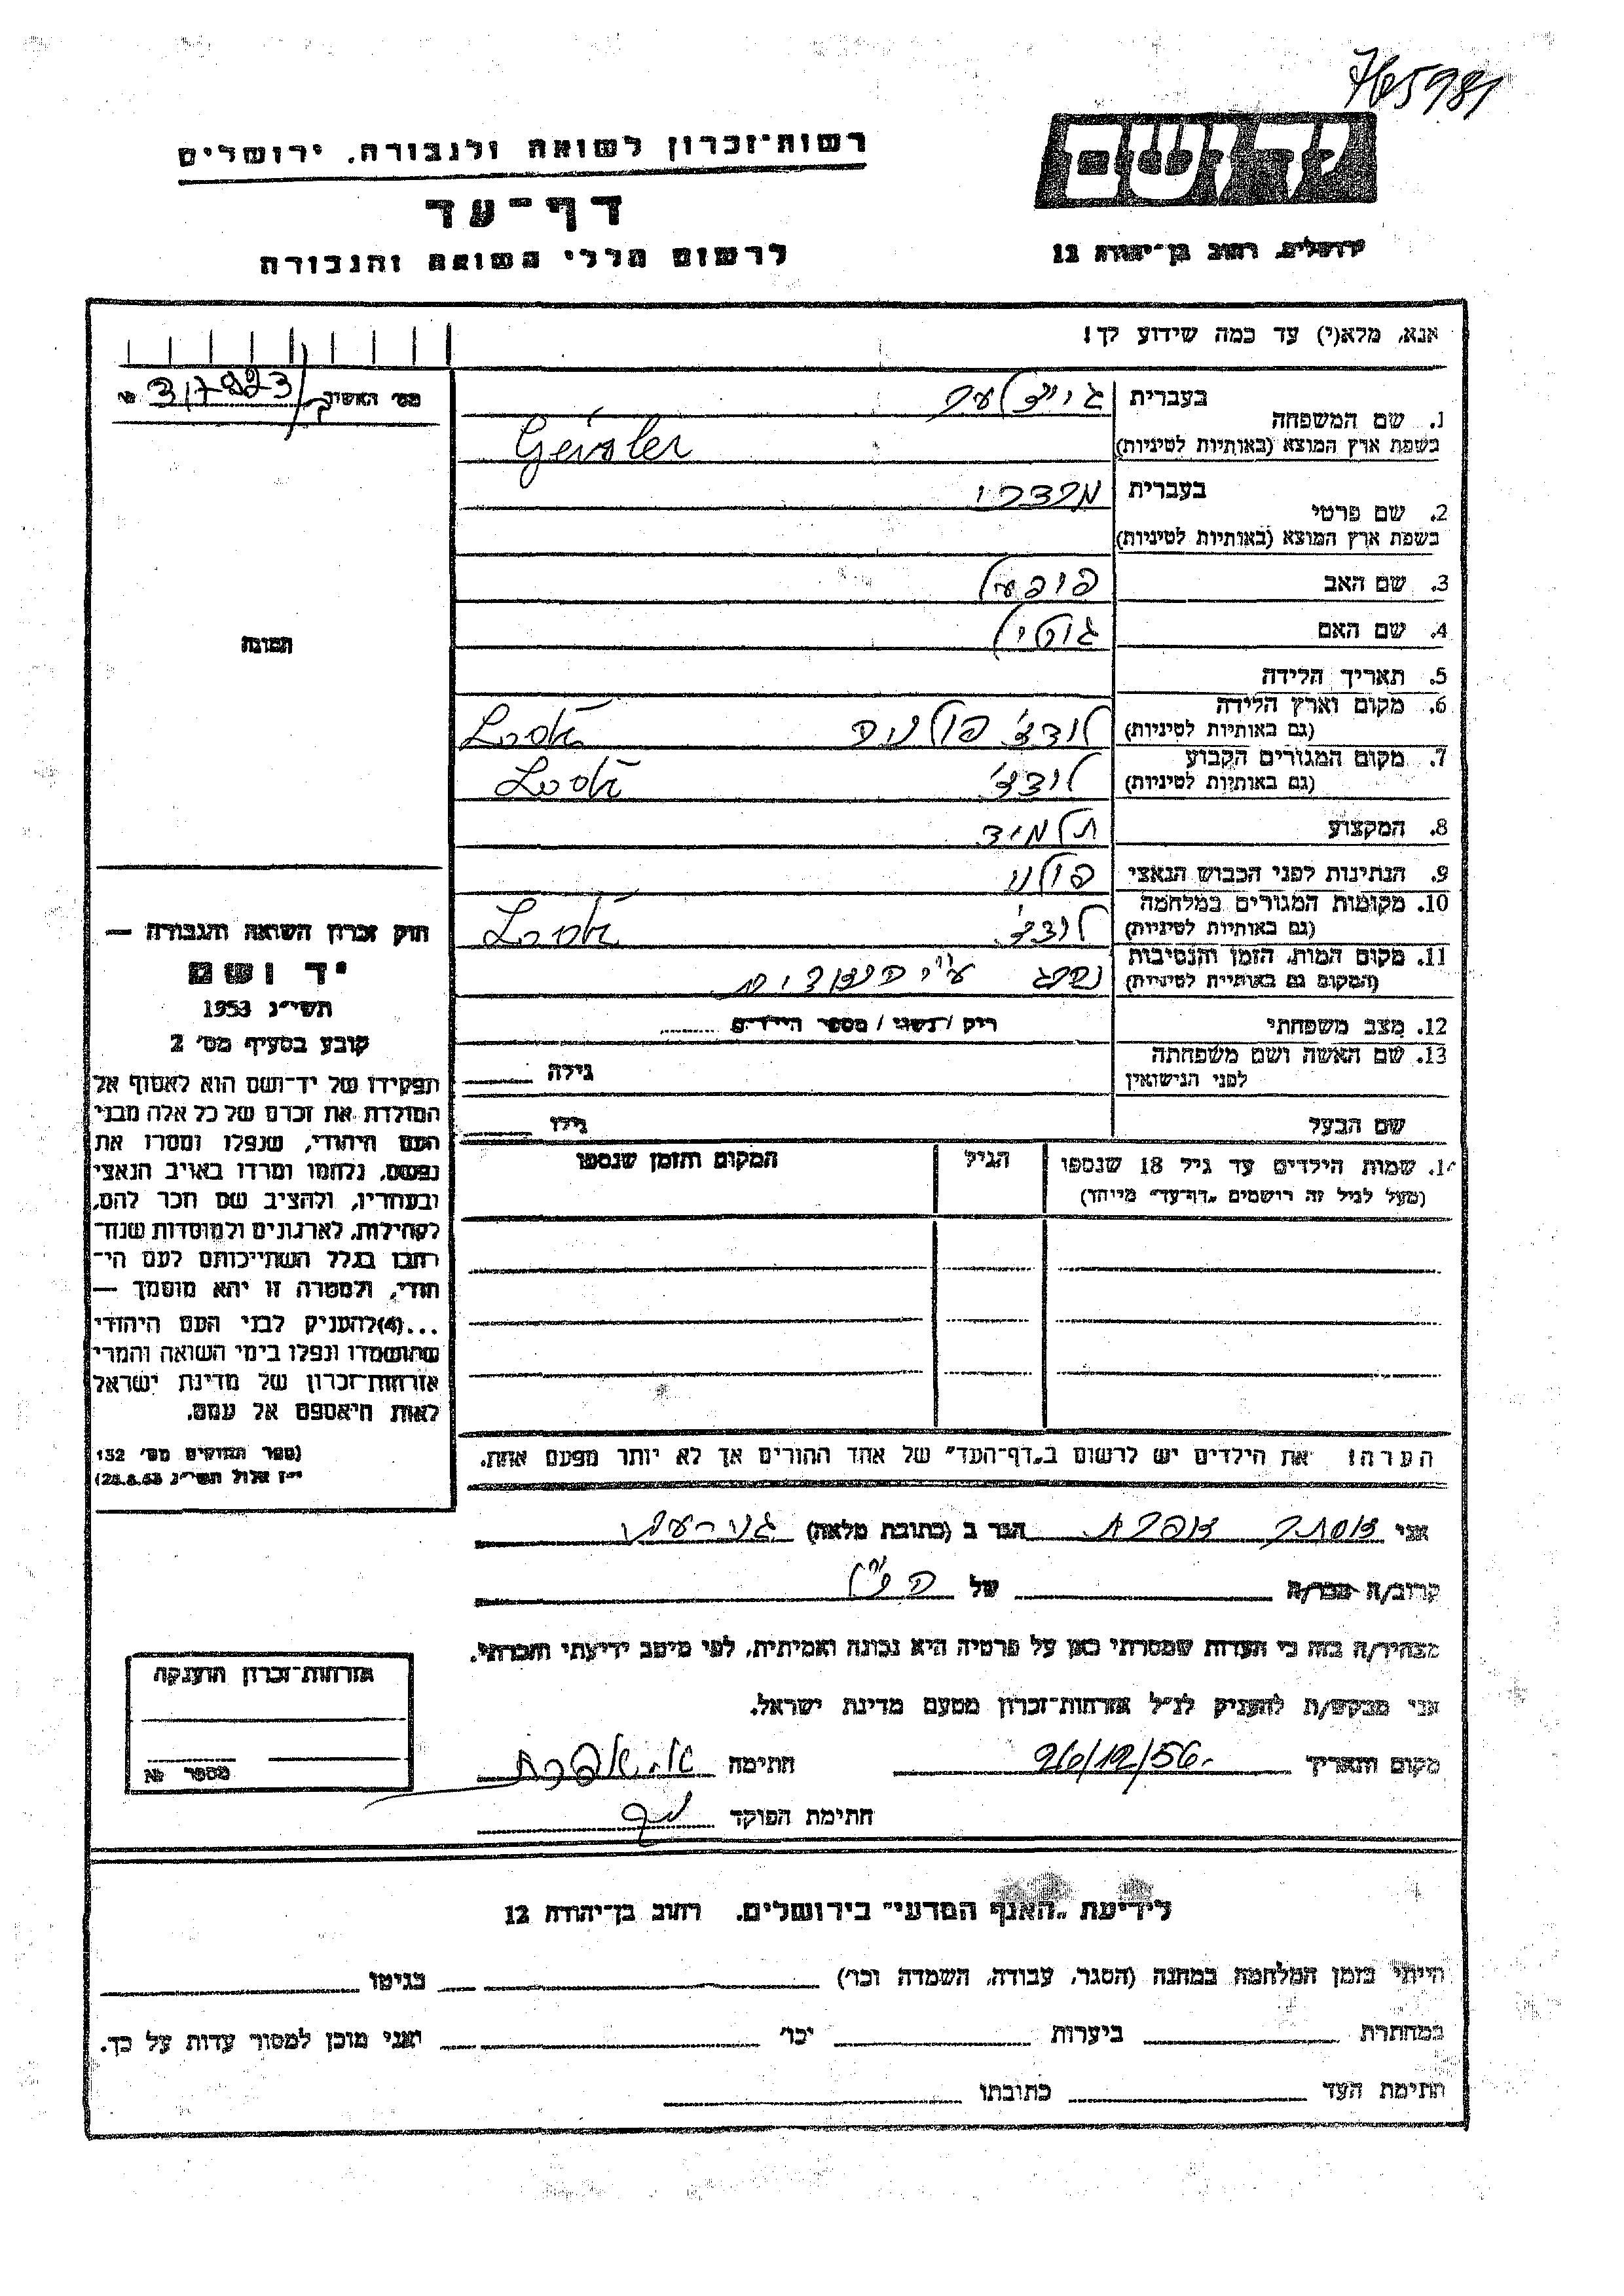 765981
יד ושם
ירושלים, רחוב בן־יהודה 12
רשות־זכרון לשואה ולגבורה, ירושלים
דף־עד
לרשום חללי השואה והגבורה
אנא, מלא(י) עד כמה שידוע לך!
מס' האשיון № 317823
1. שם המשפחה
בעברית
בשפת ארץ המוצא (באותיות לטיניות) Geisler
2. שם פרטי
בעברית מרדכי
בשפת ארץ המוצא (באותיות לטיניות)
3. שם האב
4. שם האם
5. תאריך הלידה
6. מקום וארץ הלידה (גם באותיות לטיניות) לודז' פולניה
7. מקום המגורים הקבוע (גם באותיות לטיניות) לודז'
8. המקצוע תלמיד
9. הנתינות לפני הכבוש הנאצי פולני
10. מקומות המגורים במלחמה (גם באותיות לטיניות) לודז'
11. מקום המות, הזמן והנסיבות (המקום גם באותיות לטיניות) נהרג ע"י הנאצים
12. מצב משפחתי רוק / נשוי / מספר הילדים
13. שם האשה ושם משפחתה לפני הנישואין גילה
שם הבעל גילו
14. שמות הילדים עד גיל 18 שנספו
(מעל לגיל זה רושמים „דף־עד" מיוחד)
הגיל
המקום והזמן שנספו
הערה! את הילדים יש לרשום ב„דף־העד" של אחד ההורים אך לא יותר מפעם אחת.
התמונה
חוק זכרון השואה והגבורה —
יד ושם
תשי"ג 1953
קובע בסעיף מס' 2
תפקידו של יד־ושם הוא לאסוף אל
המולדת את זכרם של כל אלה מבני
העם היהודי, שנפלו ומסרו את
נפשם, נלחמו ומרדו באויב הנאצי
ובעוזריו, ולהציב שם וזכר להם,
לקהילות, לארגונים ולמוסדות שנח־
רבו בגלל השתייכותם לעם הי־
הודי, ולמטרה זו יהא מוסמך —
...(4) להעניק לבני העם היהודי
שהושמדו ונפלו בימי השואה והמרי
אזרחות־זכרון של מדינת ישראל
לאות היאספם אל עמם.
(ספר החוקים מס' 132
י"ז אלול תשי"ג 28.8.53)
אני הגר ב (כתובת מלאה)
קרוב/ה מכר/ה של הנ"ל
מצהיר/ה בזה כי העדות שמסרתי כאן על פרטיה היא נכונה ואמיתית, לפי מיטב ידיעתי והכרתי.
אני מבקש/ת להעניק לנ"ל אזרחות־זכרון מטעם מדינת ישראל.
מקום ותאריך 26/12/56 חתימה
חתימת הפוקד
אזרחות־זכרון הוענקה
מספר №
לידיעת „האגף המדעי" בירושלים, רחוב בן־יהודה 12
הייתי בזמן המלחמה במחנה (הסגר, עבודה, השמדה וכו') בגיטו
במחתרת ביערות וכו' ואני מוכן למסור עדות על כך.
חתימת העד כתובתו